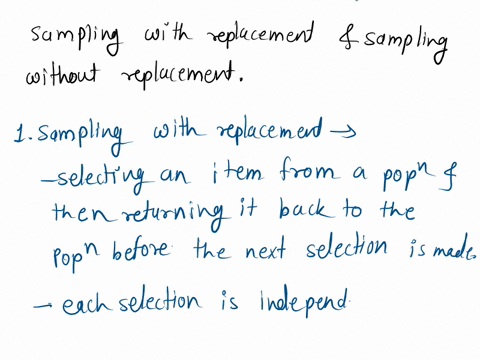 Sampling with replacement & sampling
without replacement.
1. Sampling with replacement →
- selecting an item from a popⁿ &
then returning it back to the
popⁿ before the next selection is made.
→ each selection is independ